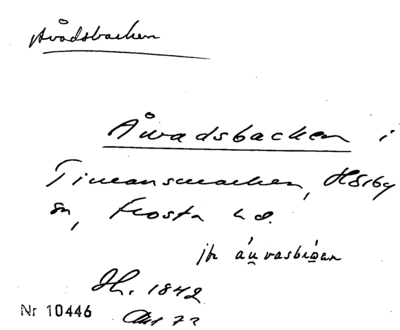 Åvadsbacken
Åwadsbacken i
Timansmarken, Hörby
sn, Frosta hd.
Jh. 1842
Nr 10446